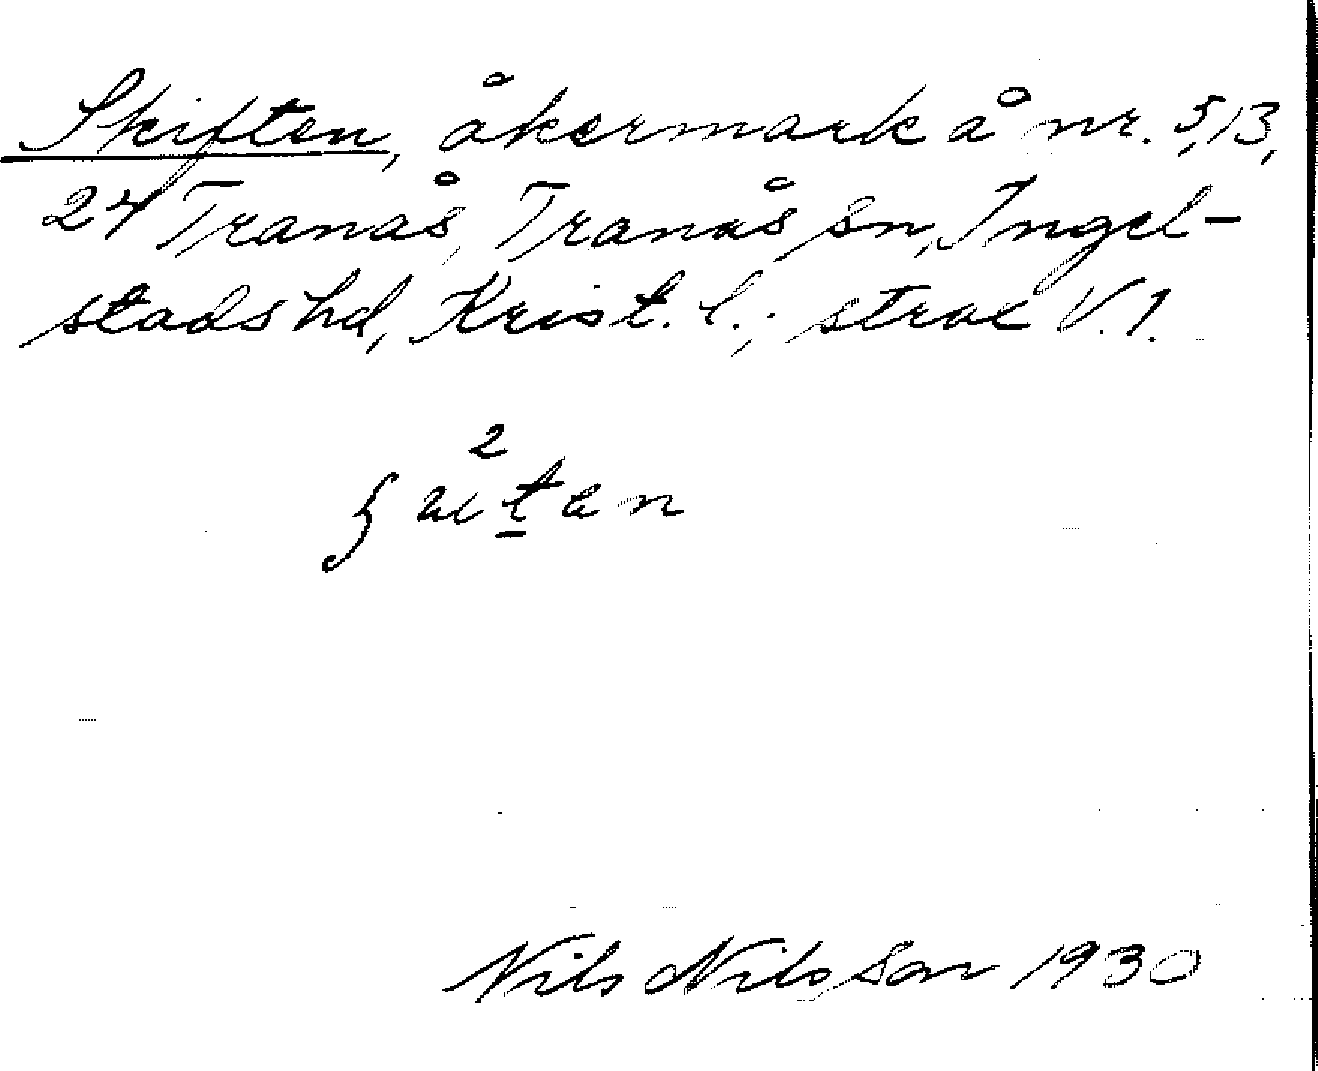 Skiften, åkermark å nr. 5, 13,
24 Tranås, Tranås sn, Ingel-
stads hd, Krist. l.;
2
Nils Nilsson 1930